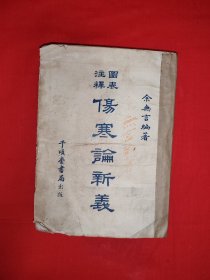 余無言編著
圖表
注釋
傷寒論新義
千頃堂書局出版